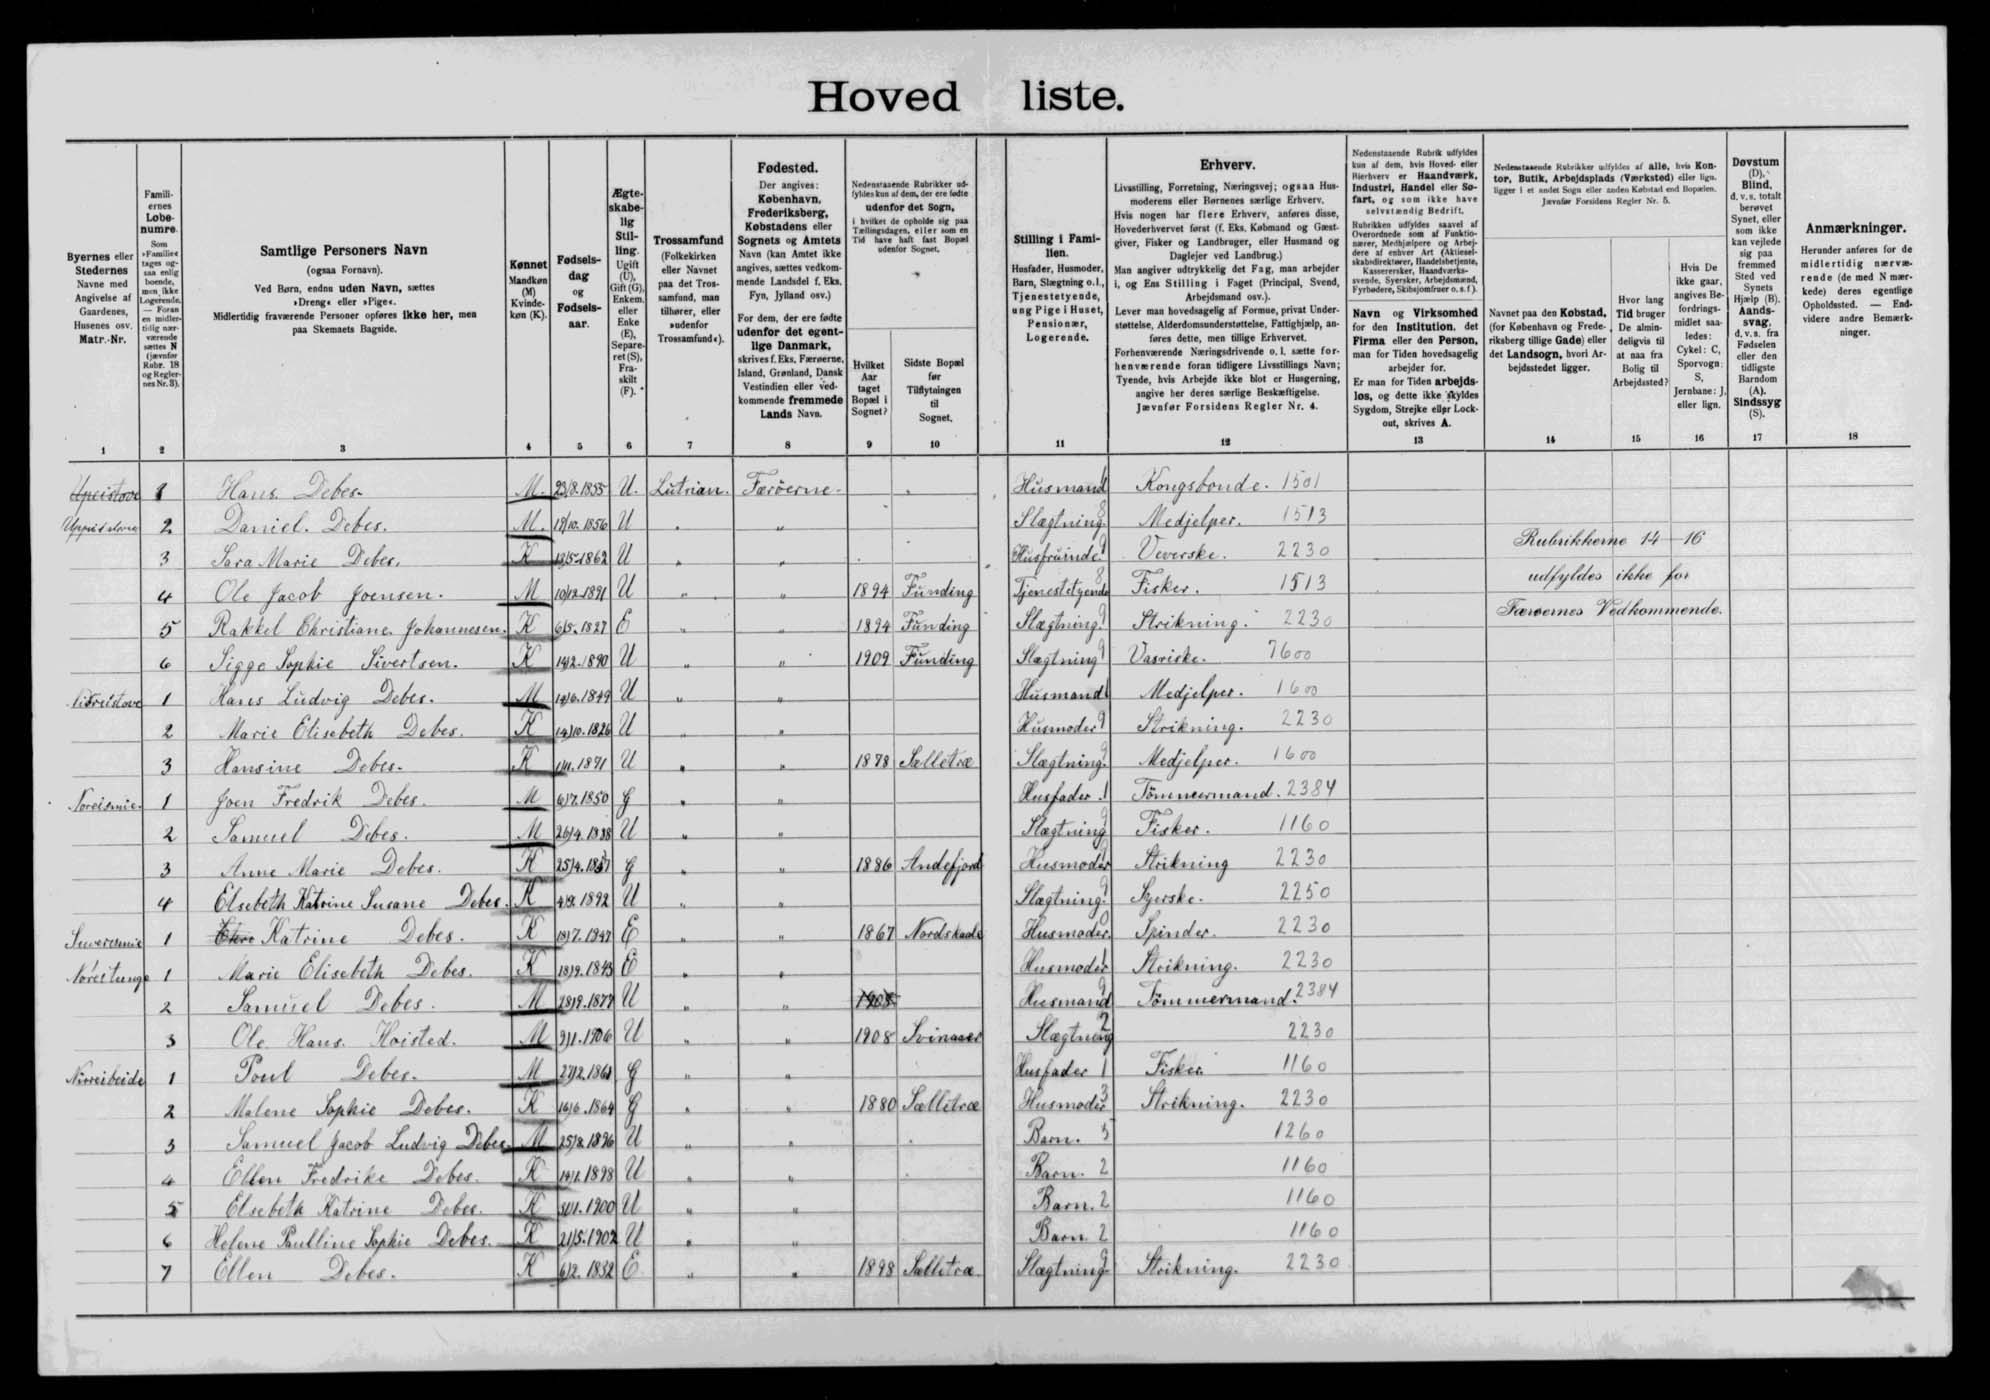 Hoved liste.
Byernes eller
Stedernes
Navne med
Angivelse af
Gaardenes,
Husenes osv.
Matr.-Nr.
1
Famili-
ernes
Løbe-
numre.
Som
»Familie«
tages og-
saa enlig
boende,
men ikke
Logerende.
— Foran
en midler-
tidig nær-
værende
sættes N
(jævnfør
Rubr. 18
og Regler-
nes Nr. 3).
2
Samtlige Personers Navn
(ogsaa Fornavn).
Ved Børn, endnu uden Navn, sættes
»Dreng« eller »Pige«.
Midlertidig fraværende Personer opføres ikke her, men
paa Skemaets Bagside.
3
Kønnet
Mandkøn
(M)
Kvinde-
køn (K).
4
Fødsels-
dag
og
Fødsels-
aar.
5
Ægte-
skabe-
lig
Stil-
ling.
Ugift
(U),
Gift (G),
Enkem.
eller
Enke
(E),
Separe-
ret (S),
Fra-
skilt
(F).
6
Trossamfund
(Folkekirken
eller Navnet
paa det Tros-
samfund, man
tilhører, eller
»udenfor
Trossamfund«).
7
Fødested.
Der angives:
København,
Frederiksberg,
Købstadens eller
Sognets og Amtets
Navn (kan Amtet ikke
angives, sættes vedkom-
mende Landsdel f. Eks.
Fyn, Jylland osv.)
For dem, der ere fødte
udenfor det egent-
lige Danmark,
skrives f. Eks. Færøerne,
Island, Grønland, Dansk
Vestindien eller ved-
kommende fremmede
Lands Navn.
8
Nedenstaaende Rubrikker ud-
fyldes kun af dem, der ere fødte
udenfor det Sogn,
i hvilket de opholde sig paa
Tællingsdagen, eller som en
Tid have haft fast Bopæl
udenfor Sognet.
Hvilket
Aar
taget
Bopæl i
Sognet?
9
Sidste Bopæl
før
Tilflytningen
til
Sognet.
10
Stilling i Fami-
lien.
Husfader, Husmoder,
Barn, Slægtning o.l.,
Tjenestetyende,
ung Pige i Huset,
Pensionær,
Logerende.
11
Erhverv.
Livsstilling, Forretning, Næringsvej; ogsaa Hus-
moderens eller Børnenes særlige Erhverv.
Hvis nogen har flere Erhverv, anføres disse,
Hovederhvervet først (f. Eks. Købmand og Gæst-
giver, Fisker og Landbruger, eller Husmand og
Daglejer ved Landbrug.)
Man angiver udtrykkelig det Fag, man arbejder
i, og Ens Stilling i Faget (Principal, Svend,
Arbejdsmand osv.).
Lever man hovedsagelig af Formue, privat Under-
støttelse, Alderdomsunderstøttelse, Fattighjælp, an-
føres dette, men tillige Erhvervet.
Forhenværende Næringsdrivende o. l. sætte for-
henværende foran tidligere Livsstillings Navn;
Tyende, hvis Arbejde ikke blot er Husgerning,
angive her deres særlige Beskæftigelse.
Jævnfør Forsidens Regler Nr. 4.
12
Nedenstaaende Rubrik udfyldes
kun af dem, hvis Hoved- eller
Bierhverv er Haandværk,
Industri, Handel eller Sø-
fart, og som ikke have
selvstændig Bedrift.
Rubrikken udfyldes saavel af
Overordnede som af Funktio-
nærer, Medhjælpere og Arbej-
dere af enhver Art (Aktiesel-
skabsdirektører, Handelsbetjente,
Kasserersker, Haandværks-
svende, Syersker, Arbejdsmænd,
Fyrbødere, Skibsjomfruer o. s. f.).
Navn og Virksomhed
for den Institution, det
Firma eller den Person,
man for Tiden hovedsagelig
arbejder for.
Er man for Tiden arbejds-
løs, og dette ikke skyldes
Sygdom, Strejke eller Lock-
out, skrives A.
13
Nedenstaaende Rubrikker udfyldes af alle, hvis Kon-
tor, Butik, Arbejdsplads (Værksted) eller lign.
ligger i et andet Sogn eller anden Købstad end Bopælen.
Jævnfør Forsidens Regler Nr. 5.
Navnet paa den Købstad,
(for København og Frede-
riksberg tillige Gade) eller
det Landsogn, hvori Ar-
bejdsstedet ligger.
14
Hvor lang
Tid bruger
De almin-
deligvis til
at naa fra
Bolig til
Arbejdssted?
15
Hvis De
ikke gaar,
angives Be-
fordrings-
midlet saa-
ledes:
Cykel: C,
Sporvogn:
S,
Jernbane: J,
eller lign.
16
Døvstum
(D).
Blind,
d. v. s. totalt
berøvet
Synet, eller
som ikke
kan vejlede
sig paa
fremmed
Sted ved
Synets
Hjælp (B).
Aands-
svag,
d. v. s. fra
Fødselen
eller den
tidligste
Barndom
(A).
Sindssyg
(S).
17
Anmærkninger.
Herunder anføres for de
midlertidig nærvæ-
rende (de med N mær-
kede) deres egentlige
Opholdssted. — End-
videre andre Bemærk-
ninger.
18
Upeistove 1 Hans Debes. M. 23/8.1855 U. Lutrian. Færöerne. Husmand 1 Kongsbonde. 1501
2 Daniel. Debes. M. 19/10.1856 U " " Slægtning 8 Medjelper. 1513
3 Sara Marie Debes. K 13/5.1862 U " " Husfruinde 9 Veverske. 2230
4 Ole Jacob Joensen. M 10/12.1891 U " " 1894 Funding Tjenestetyende 8 Fisker. 1513
5 Rakkel Christiane Johannesen. K 6/5.1827 E " " 1894 Funding Slægtning 9 Strikning. 2230
6 Sigge Sophie Sivertsen. K 14/2.1890 U " " 1909 Funding Slægtning 9 Vasriske. 7600
Rubrikkerne 14-16
udfyldes ikke for
Færøernes Vedkommende.
1 Hans Ludvig Debes. M 14/6.1849 U " " Husmand 1 Medjelper. 1600
2 Marie Elisebeth Debes. K 14/10.1826 U " " Husmoder 9 Strikning. 2230
3 Hansine Debes. K 1/11.1891 U " " 1878 Sælletræ Slægtning 9 Medjelper. 1600
Noreismie. 1 Joen Fredrik Debes. M 6/7.1850 G " " Husfader. 1 Tömmermand. 2384
2 Samuel Debes. M 26/4.1888 U " " Slægtning 9 Fisker. 1160
3 Anne Marie Debes. K 25/4.1857 G " " 1886 Andefjord Husmoder Strikning 2230
4 Elsebeth Katrine Susane Debes. K 4/9.1892 U " " Slægtning 9 Syerske. 2250
1 Katrine Debes. K 19/7.1947 E " " 1867 Nordskaale Husmoder. 0 Spinder. 2230
Noreitunge 1 Marie Elisebeth Debes. K 18/9.1843 E " " Husmoder 1 Strikning. 2230
2 Samuel Debes. M 28/9.1877 U " " 1908 Husmand 9 Tömmermand. 2384
3 Ole Hans. Hoisted. M 9/1.1906 U " " 1908 Svinaaer Slægtning 2 2230
1 Poul Debes. M 27/2.1861 G " " Husfader 1 Fisker 1160
2 Malene Sophie Debes. K 16/6.1864 G " " 1880 Sælletræ Husmoder 3 Strikning. 2230
3 Samuel Jacob Ludvig Debes. M 25/8.1896 U " " Barn. 5 1260
4 Ellen Fredrike Debes. K 14/1.1898 U " " Barn. 2 1160
5 Elsebeth Katrine Debes. K 30/1.1900 U " " Barn. 2 1160
6 Helene Paulline Sophie Debes. K 21/5.1902 U " " Barn 2 1160
7 Ellen Debes. K 6/2.1832 E " " 1898 Sælletræ Slægtning 9 Strikning. 2230